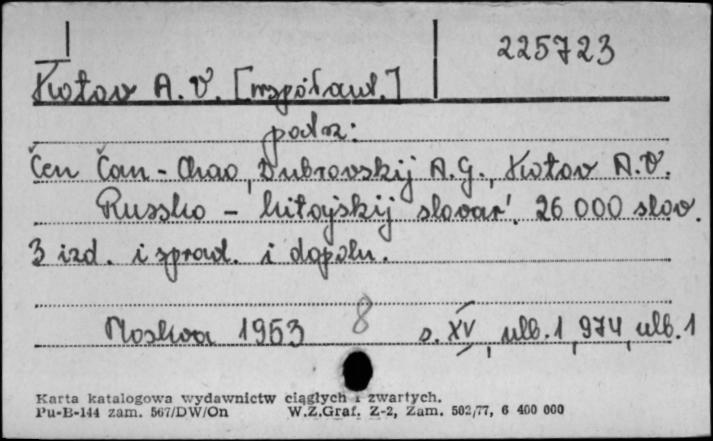 225723
Kotov A.V. [współaut.]
patrz:
Čen Čan-Chao, Dubrovskij A.G., Kotov A.V.
Russko - kitajskij slovar'. 26 000 slov.
3 izd. ispravl. i dopoln.
Moskva 1953 8 s. XV, nlb. 1, 974, nlb. 1
Karta katalogowa wydawnictw ciągłych i zwartych.
Pu-B-144 zam. 567/DW/On W.Z.Graf. Z-2, Zam. 502/77, 6 400 000